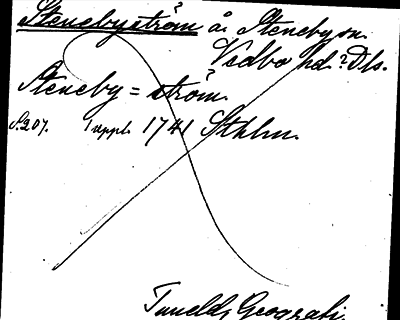 Stenebyström å. Steneby sn.
Vedbo hd. Dls.
Steneby = ström.
S. 207. 1 uppl. 1741 Sthlm.
Tunelds Geografi.